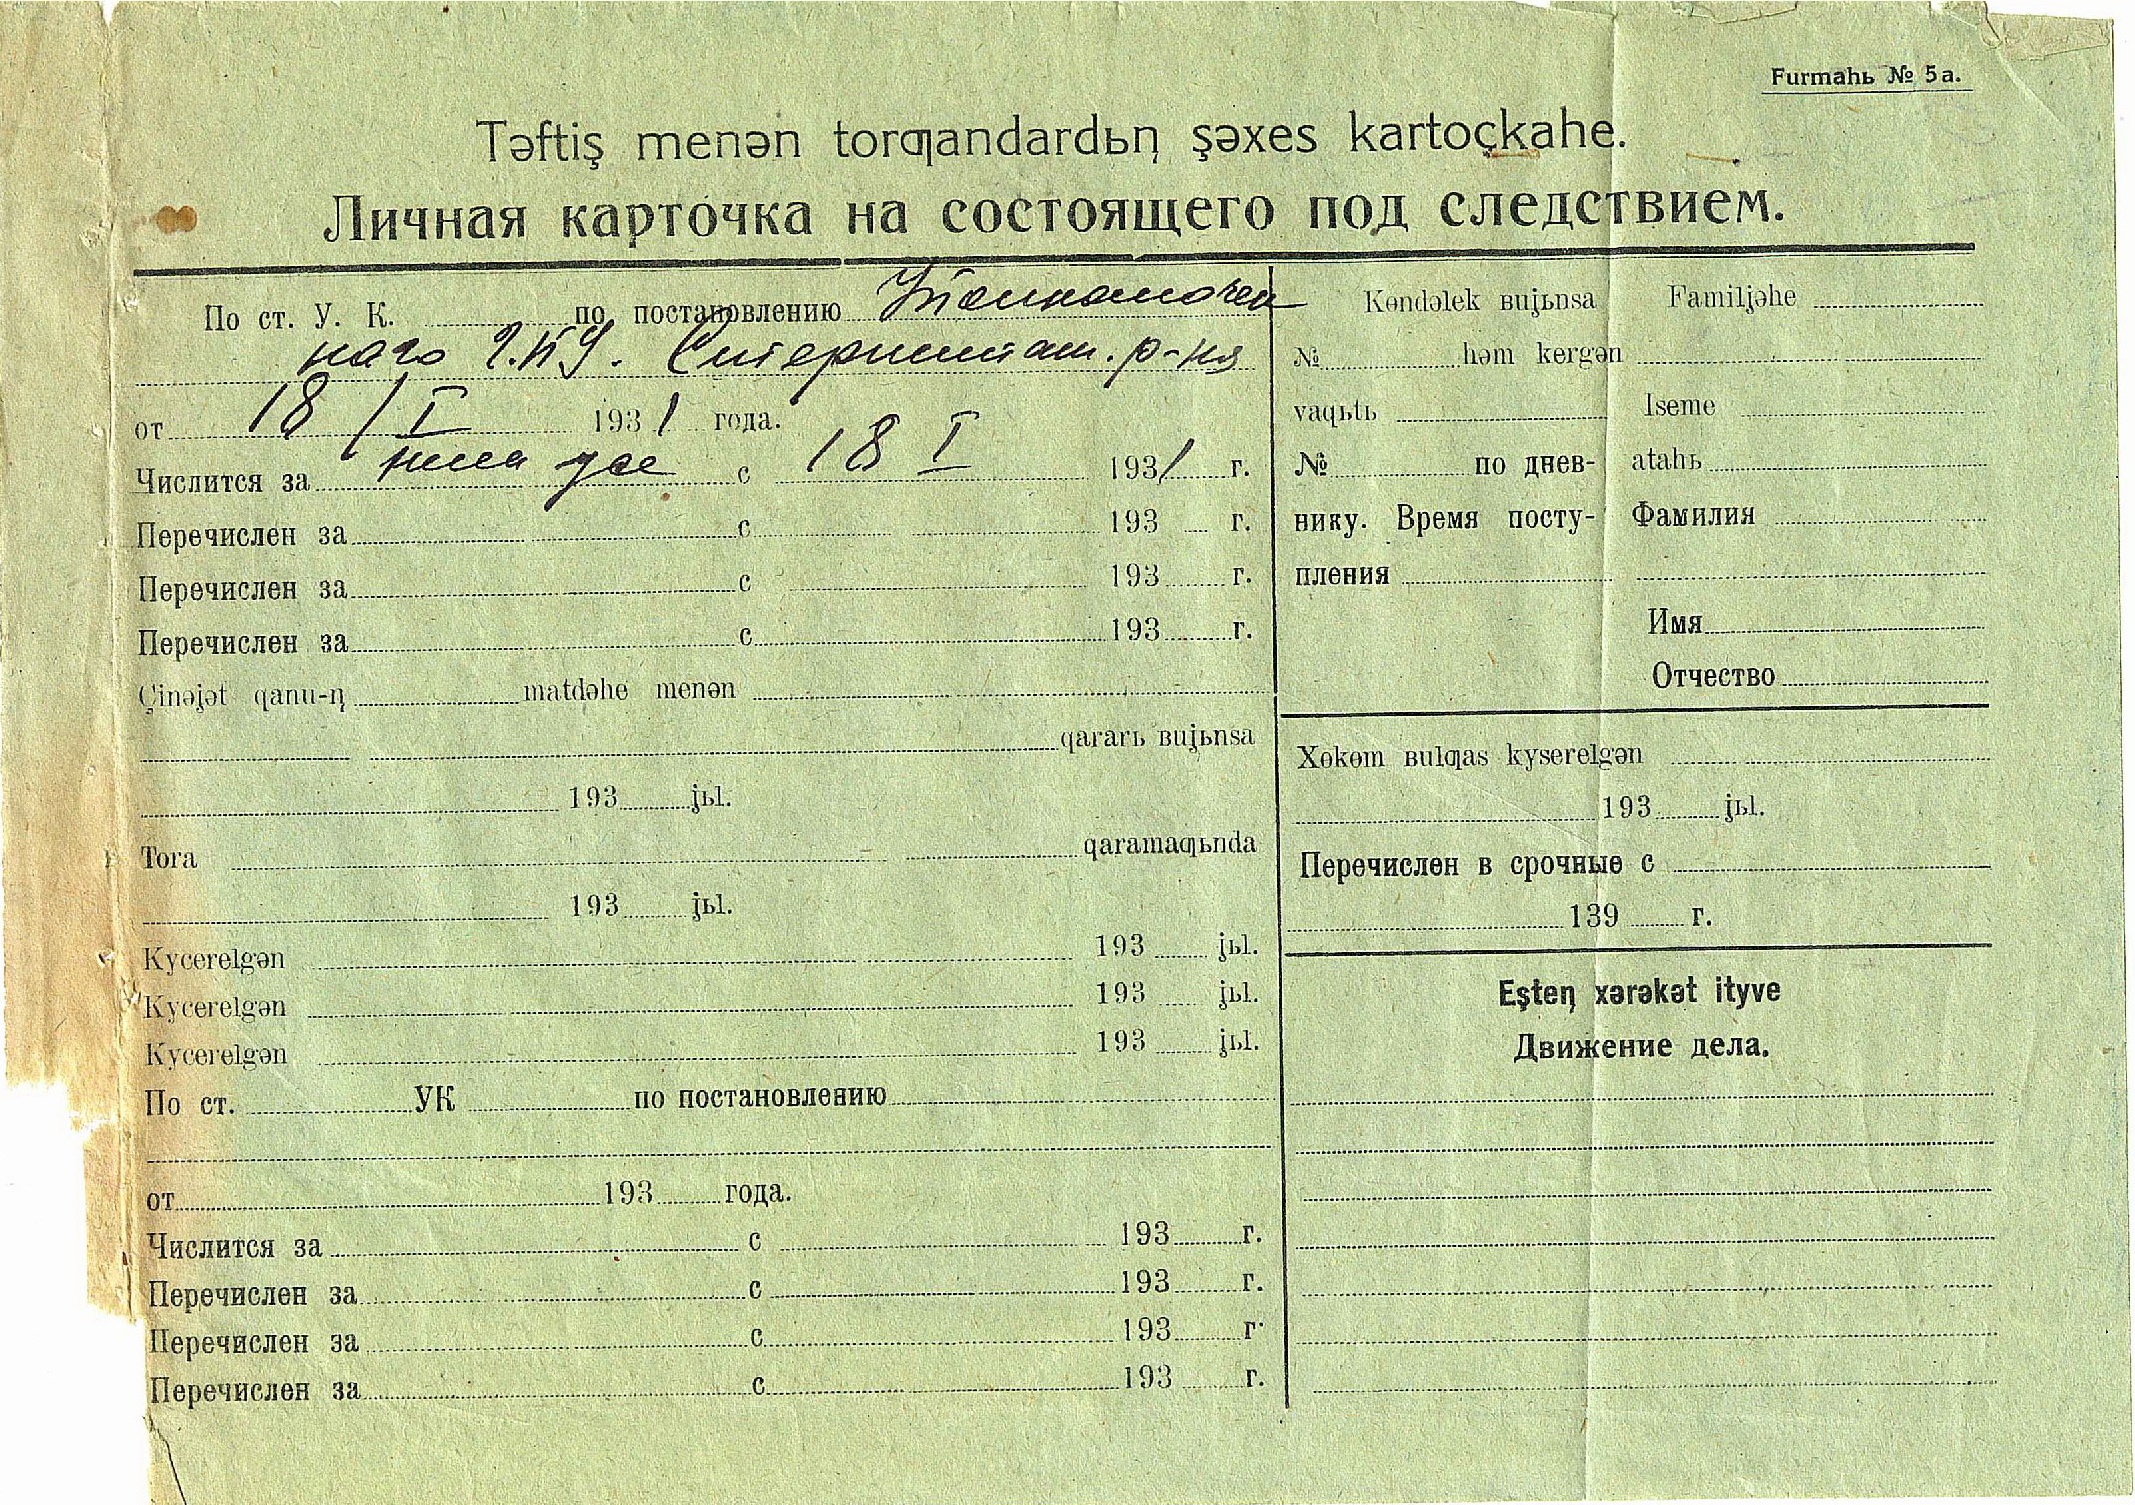 Furmahь № 5a.
Təftiş menən torƣandardьꞑ şəxes kartoçkahe.
Личная карточка на состоящего под следствием.
По ст. У. К. по постановлению Уполномочен
наго Г.П.У. Стерлитам. р-на
от 18/I 1931 года.
Числится за с 18 I 1931 г.
Перечислен за с 193 г.
Перечислен за с 193 г.
Перечислен за с 193 г.
Çinəjət qanu-ꞑ matdəhe menən
qararь вujьnsa
193 jьl.
Tora qaramaƣьnda
193 jьl.
Kycerelgən 193 jьl.
Kycerelgən 193 jьl.
Kycerelgən 193 jьl.
По ст. УК по постановлению
от 193 года.
Числится за с 193 г.
Перечислен за с 193 г.
Перечислен за с 193 г.
Перечислен за с 193 г.
Kɵndəlek вujьnsa
№ həm kergən
vaqьtь
№ по днев-
нику. Время посту-
пления
Familjəhe
Iseme
atahь
Фамилия
Имя
Отчество
Xɵkɵm вulƣas kyserelgən
193 jьl.
Перечислен в срочные с
139 г.
Eşteꞑ xərəkət ityve
Движение дела.